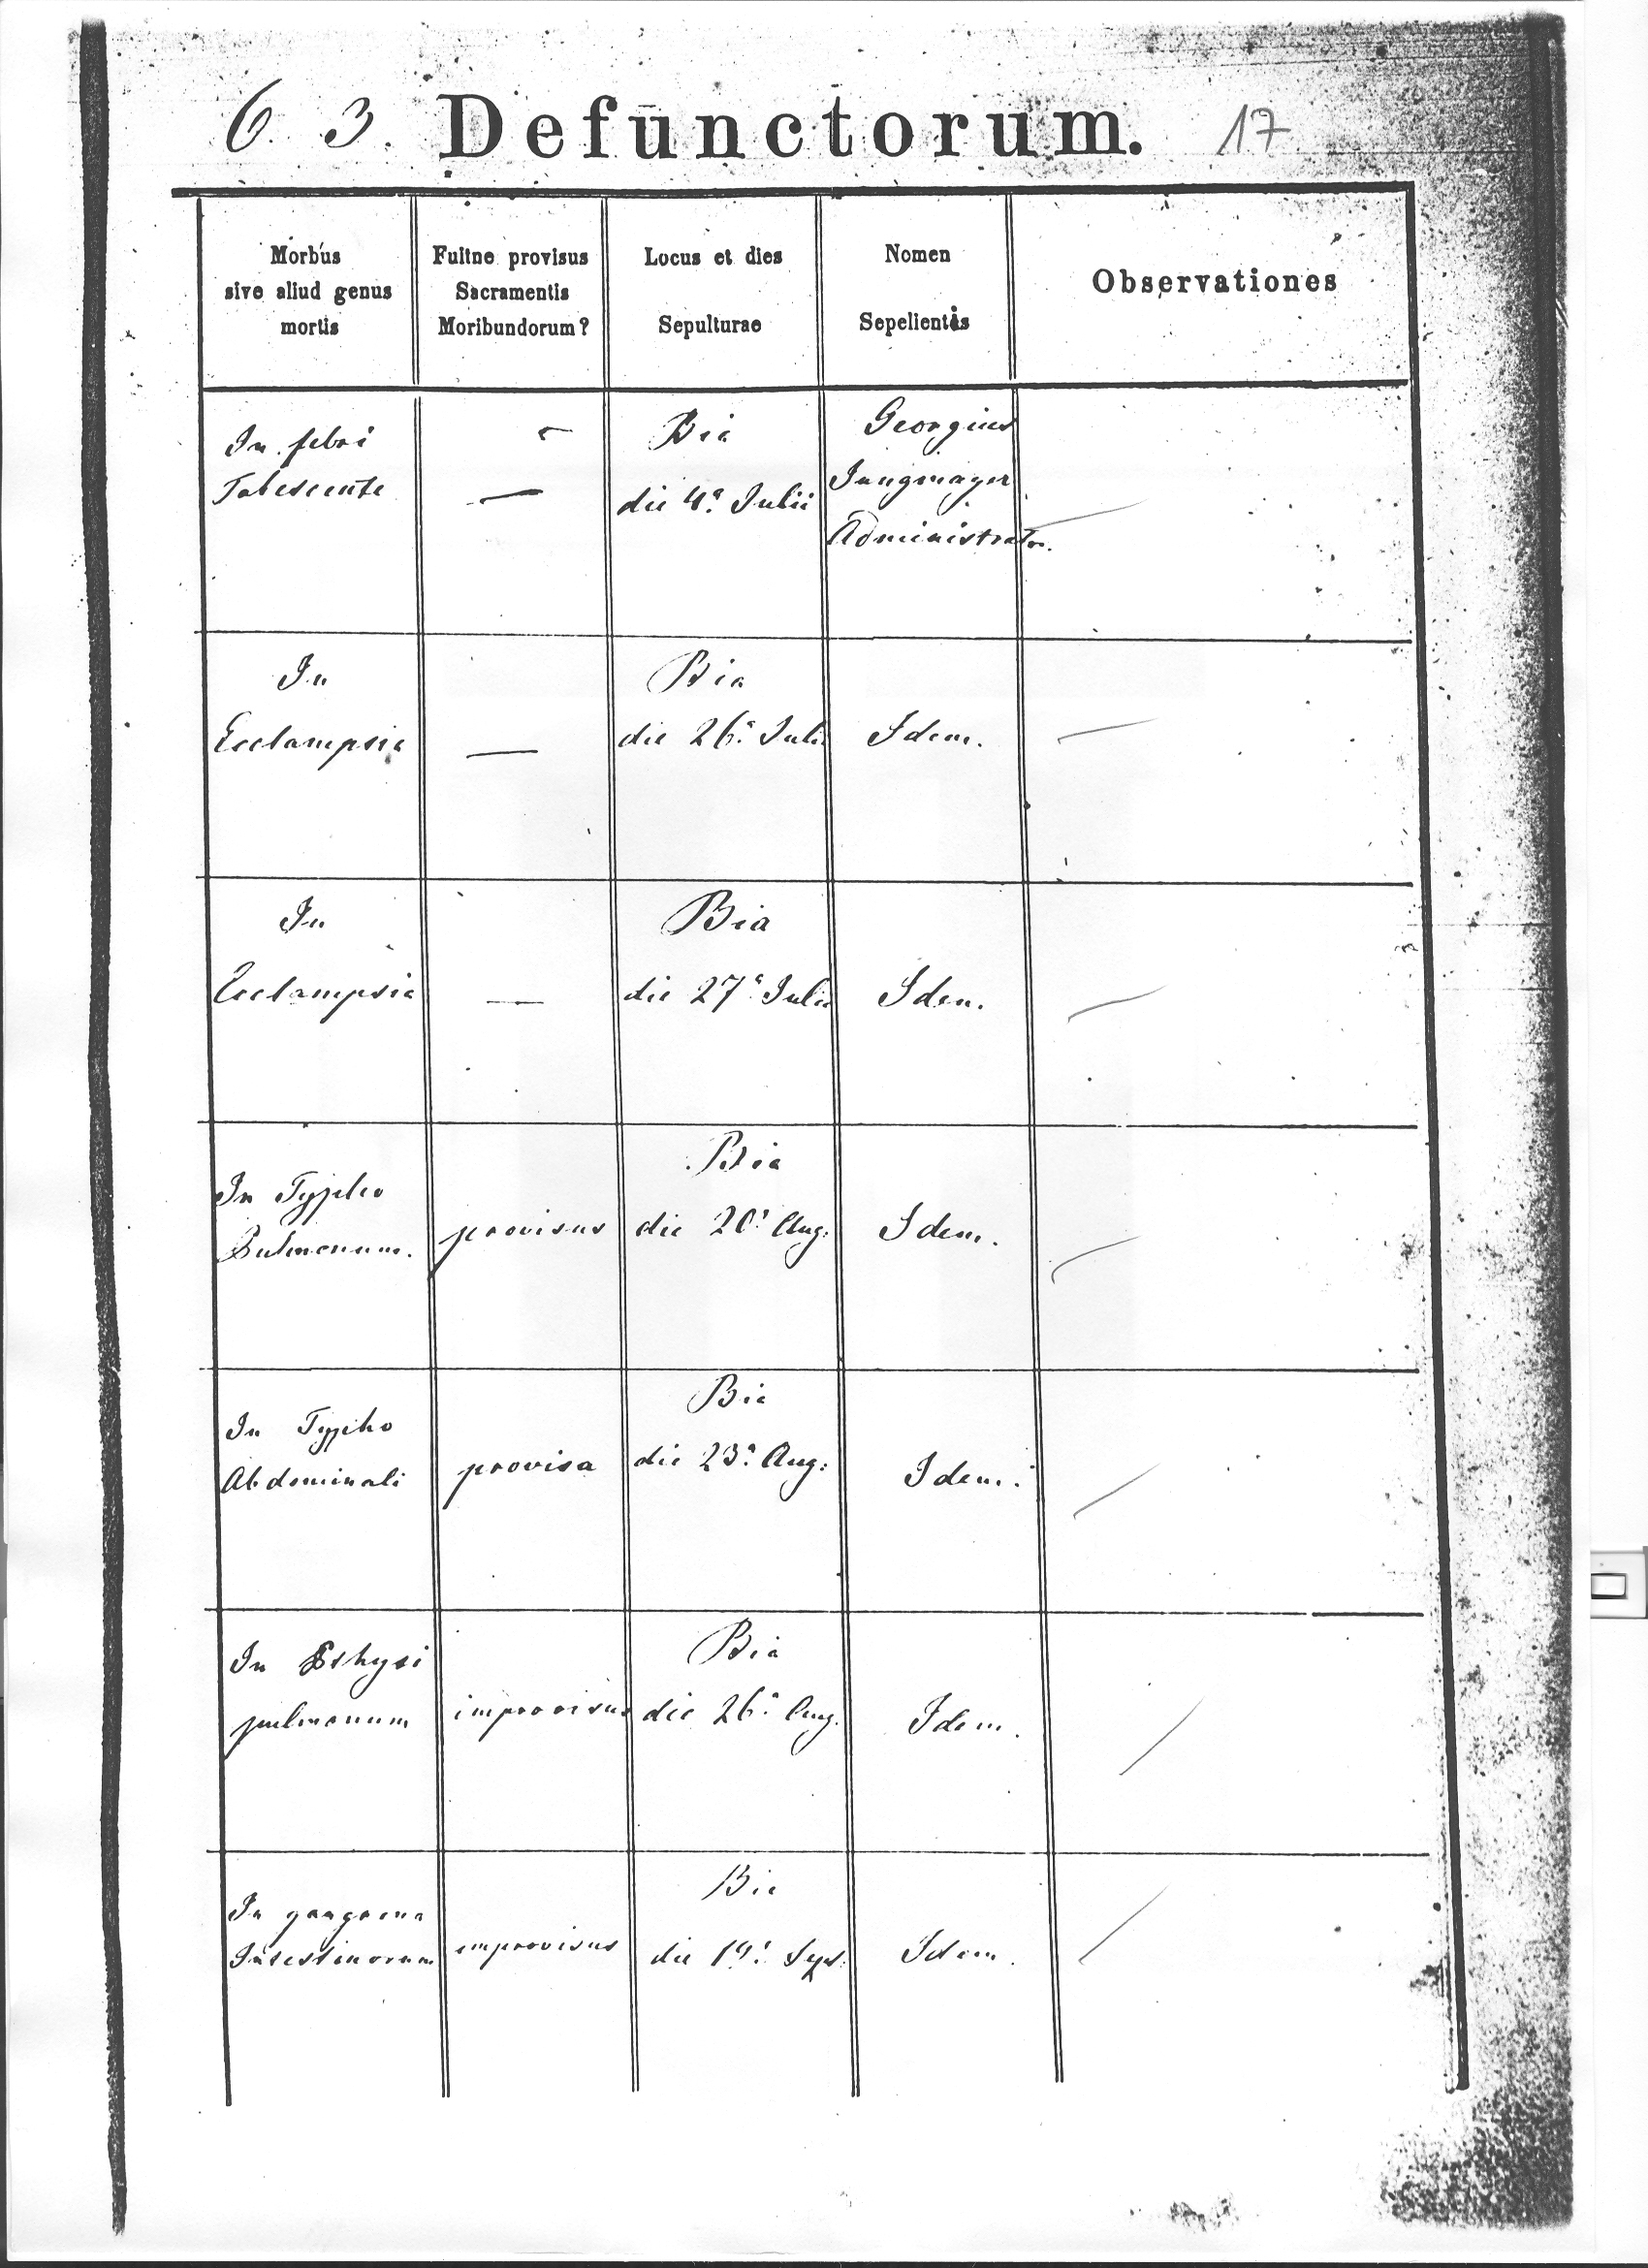 6 3. Defunctorum. 17
Morbus
sive aliud genus
mortis
Fuitne provisus
Sacramentis
Moribundorum?
Locus et dies
Sepulturae
Nomen
Sepelientis
Observationes
In febri
Tabescente
—
Bia
die 4ª Julii
Georgius
Jungmayer
Administrator.
In
Ecclampsia
—
Bia
die 26ª Julii
Idem.
In
Ecclampsia
—
Bia
die 27ª Julii
Idem.
In Typho
Pulmonum.
provisus
Bia
die 20ª Aug:
Idem.
In Typho
Abdominali
provisa
Bia
die 23ª Aug:
Idem.
In
pulmonum
improvisus
Bia
die 26ª Aug.
Idem.
In gangrena
Intestinorum
improvisus
Bia
die Sept.
Idem.